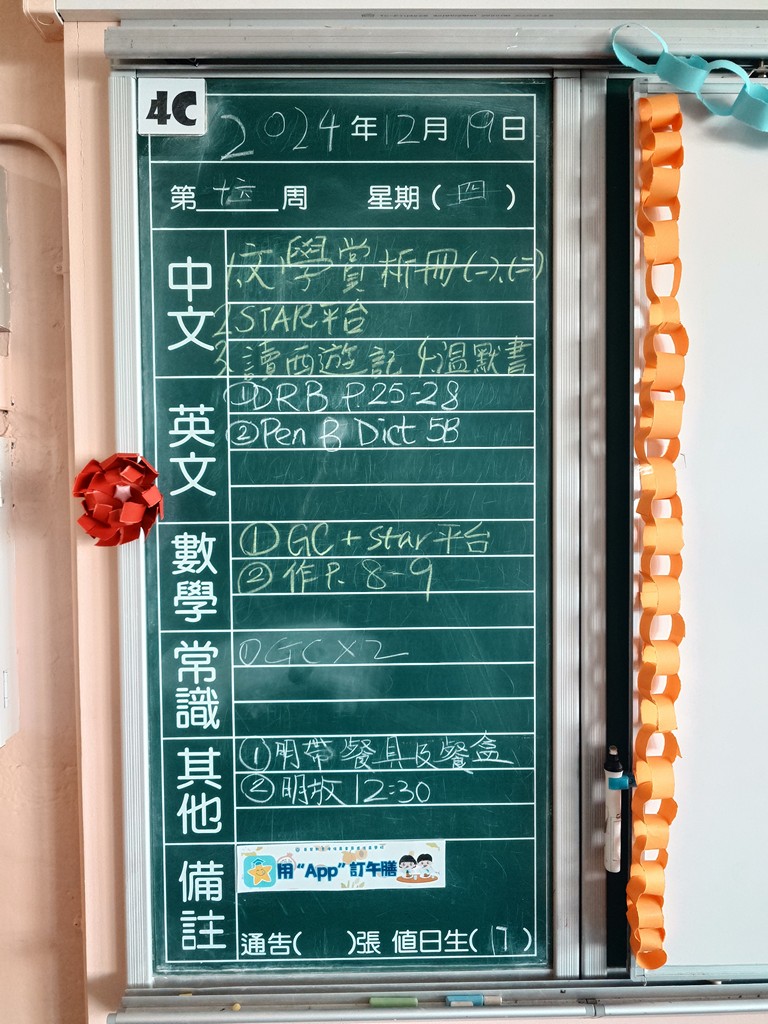 4C
2024年12月19日
第十六周 星期(四)
中文
1.文學賞析冊(一),(二)
2.STAR平台
3.讀西遊記 4.溫默書
英文
①DRB P.25-28
②Pen B Dict 5B
數學
①GC+star平台
②作P. 8-9
常識
①GC×2
其他
①明帶餐具及餐盒
②明放 12:30
備註
用"App"訂午膳
通告( )張 值日生(17)